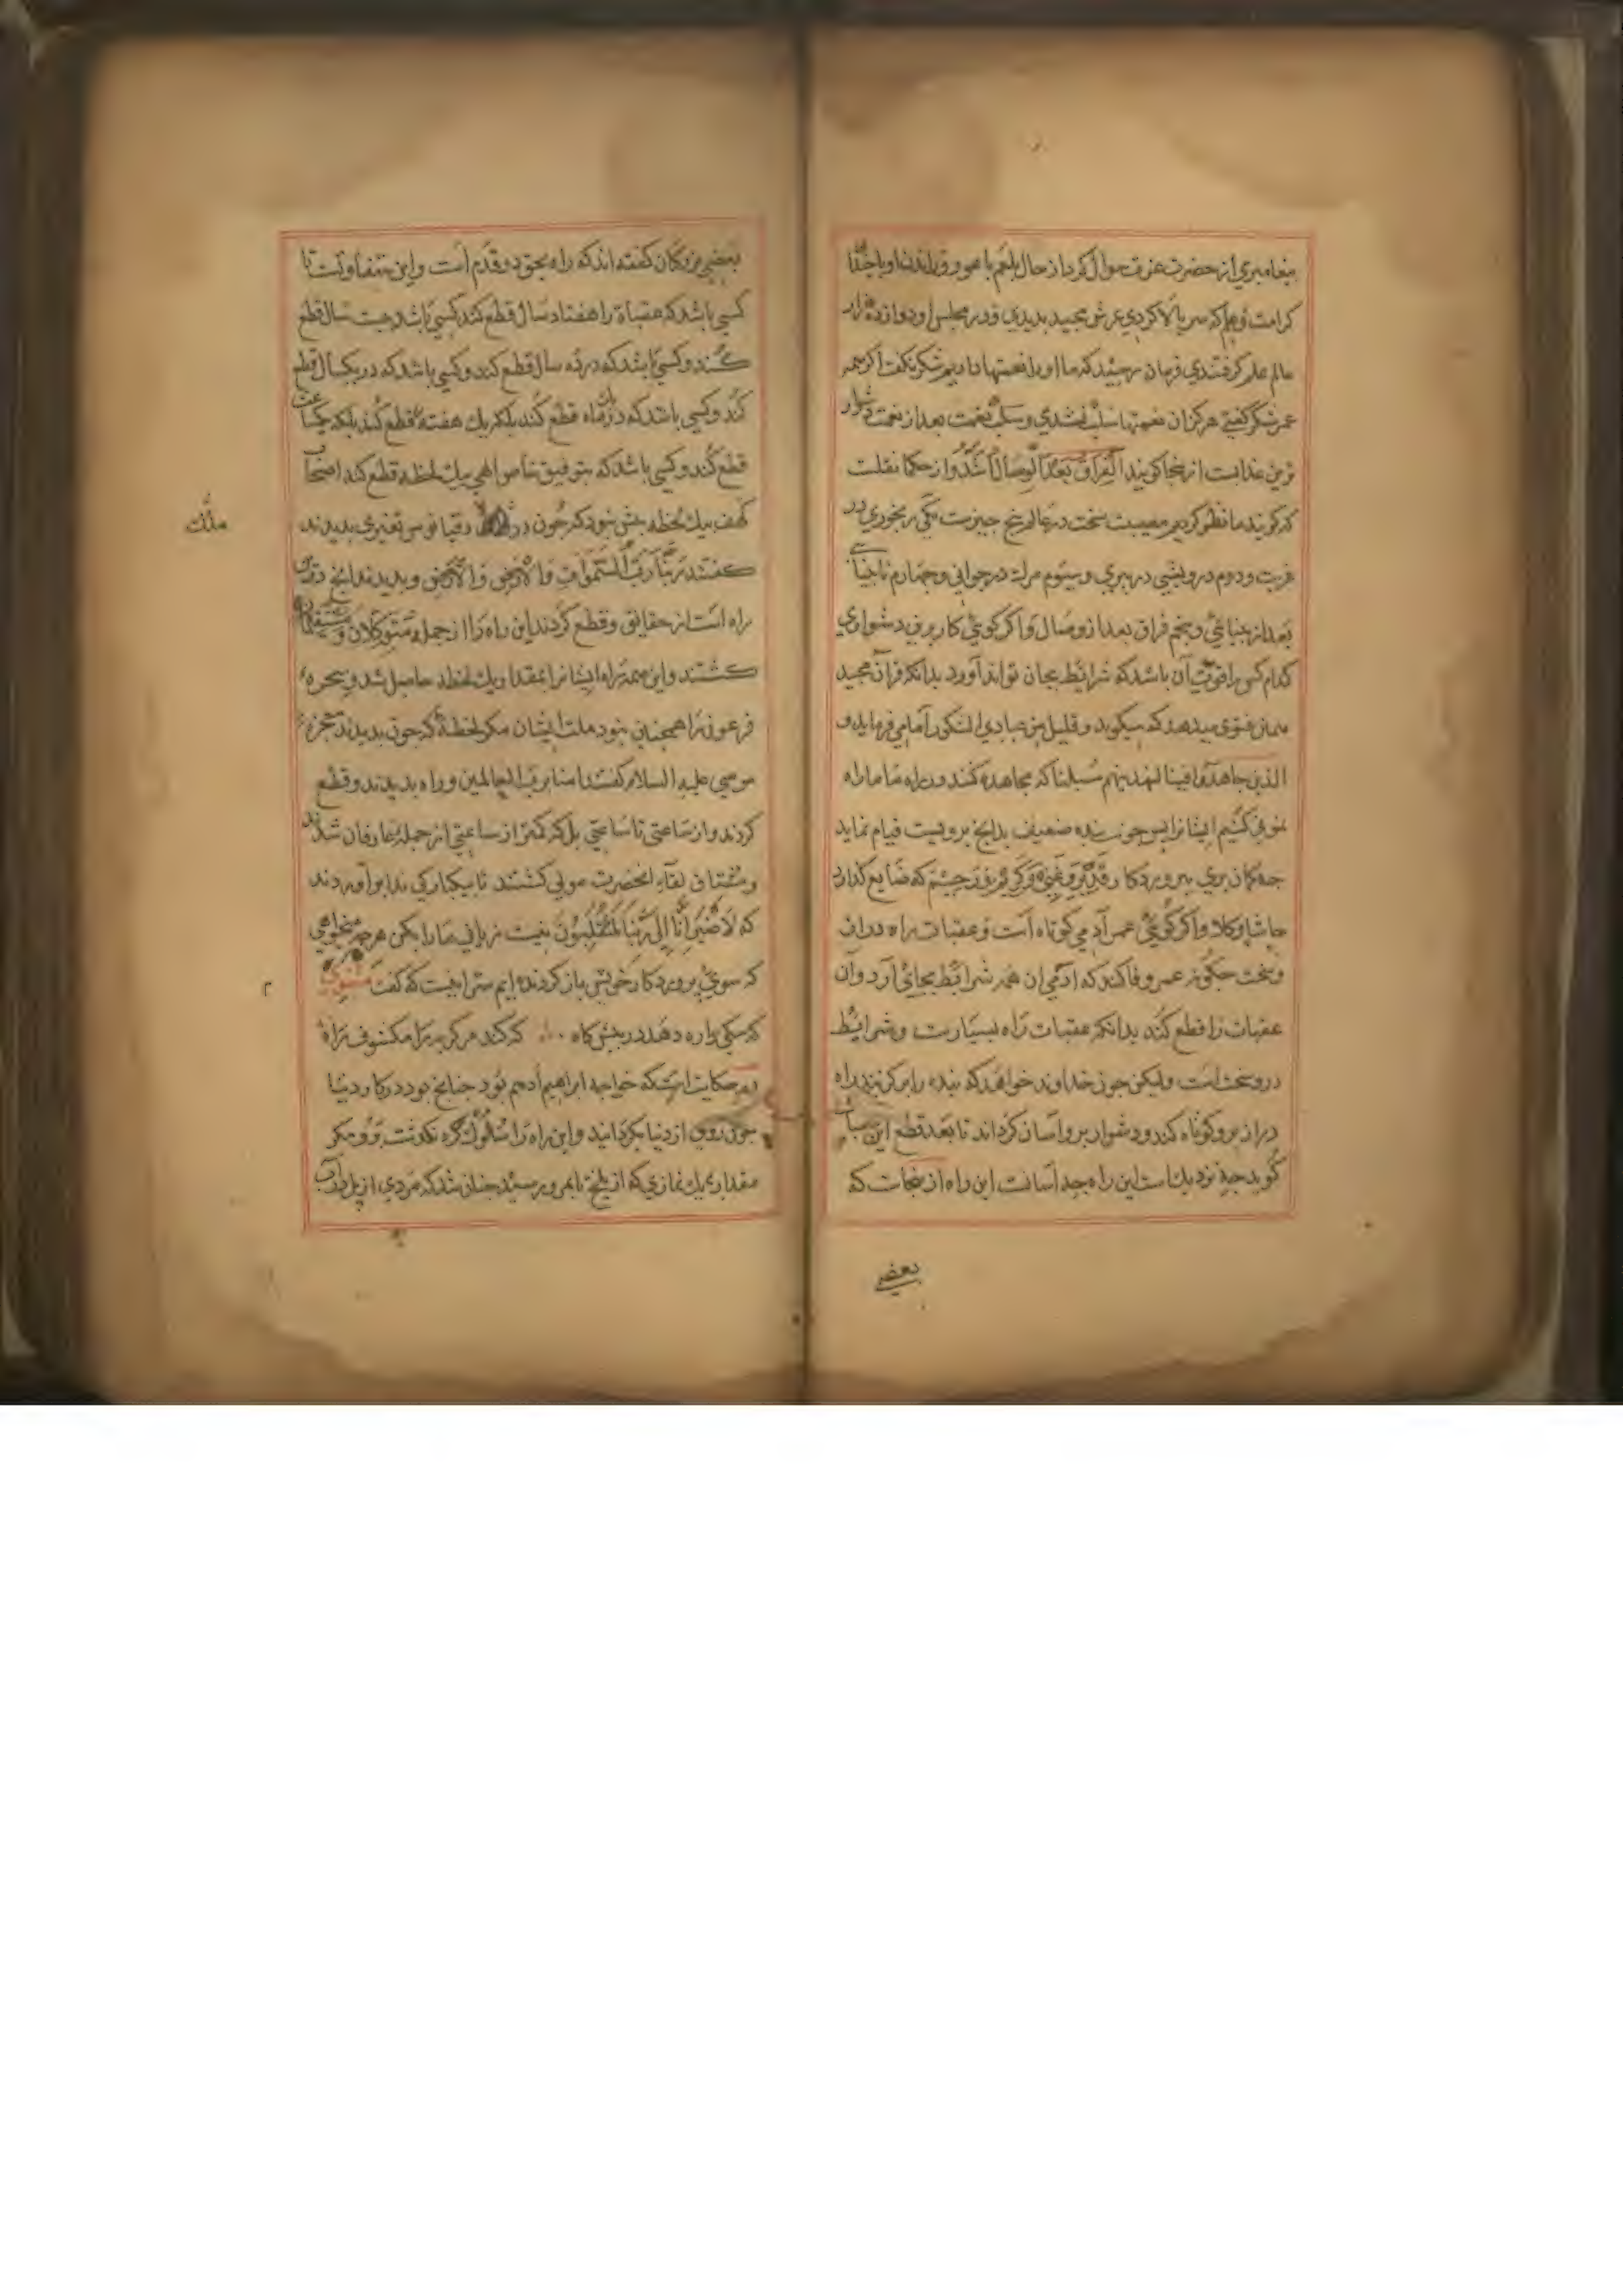 پیغامبری از حضرت عزت سوال کرد از حال بلعم باعور و راندن او با چندان
کرامت و علم که سر بالا کردی عرش مجید بدیدی و در مجلس او دوازده هزار
عالم علم گرفتندی فرمان رسید که ما او را نعمتها دادیم شکر نکفت اکر همه
عمر شکر کفتی هرکز آن نعمتها سلب نشدی و سلب نعمت بعد از نعمت دشوار
ترین عذابست از ینجا کویند الفراق بعد الوصال اشد و از حکما نقلست
که کویند ما نظر کردیم مصیبت سخت در عالم پنج چیزست یکی رنجوری در
غربت و دوم درویشی در پیری و سیوم مرک در جوانی و چهارم نابینایی
بعد از بینائی و پنجم فراق بعد از وصال و اکر کوئی کار برین دشواری
کدام کس را قوت آن باشد که شرائط بجای تواند آورد بدانکه قرآن مجید
همین فتوی میدهد که میکوید و قلیل من عبادی الشکور اما می فرماید و
الذین جاهدوا فینا لنهدینهم سبلنا که مجاهده کنند در راه ما ما راه
نمونی کنیم ایشانرا پس چون بنده ضعیف بدانچ بر ویست قیام نماید
چه کمان بری بپروردکار قدیر و غنی و کریم و رحیم که ضایع کذارد
حاشا و کلا و اکر کوئی عمر آدمی کوتاه است و عقبات راه دراز
و سخت چکونه عمر وفا کند که آدمی آن همه شرائط بجای آرد و آن
عقبات را قطع کند بدانکه عقبات راه بسیارست و شرایط
درو سخت است ولیکن چون خداوند خواهد که بنده را برکزیند راه
دراز برو کوتاه کند و دشوار برو آسان کرداند تا بعد قطع این
کوید چه نزدیک است این راه چه آسانست این راه از ینجاست که
بعضی
بعضی بزرکان کفته اند که راه بحق دو قدم است و این متفاوتست تا
کسی باشد که عقبات را هفتاد سال قطع کند کسی باشد بیست سال قطع
کند و کسی باشد که در ده سال قطع کند و کسی باشد که در یکسال قطع
کند و کسی باشد که در یک ماه قطع کند بلکه یک هفته قطع کند بلکه یکساعت
قطع کند و کسی باشد که بتوفیق خاص الهی بیک لحظه قطع کند اصحاب
کهف بیک لحظه بیش نبود که چون در دقیانوس تغیری بدیدند
ملک
کفتند ربنا رب السموات والارض والارض و بدیدند انچ درین
راه است از حقایق و قطع کردند این راه را از جمله متوکلان و مستقیمان
کشتند و این همه راه ایشانرا بمقدار یک لحظه حاصل شد و سحره
فرعون را همچنین نبود ملت ایشان مکر لحظه که چون بدیدند معجزه
موسی علیه السلام کفتند امنا برب العالمین و راه بدیدند و قطع
کردند و از ساعتی تا ساعتی بلکه کمتر از ساعتی از جمله عارفان شدند
و مشتاق لقاء انحضرت مولی کشتند تا بیکبارکی ندا براوردند
که لا ضیر انا الی ربنا لمنقلبون نیست زیانی ما را بکن هرچه میخواهی
که سوی پروردکار خویش باز کردنده ایم سر اینست که کفت مثنوی
۲
که یکی را ره دهد در پیش کاه ... که کند مرکز برا مکشوف راه
حکایت است که خواجه ابراهیم ادهم بود چنانچ بود در کار دنیا
چون روی از دنیا بکردانید و این راه را سلوک کرد نکذشت برو مکر
مقدار یک نمازی که از بلخ تا بمرو برسید چنان شد که مردی از پل